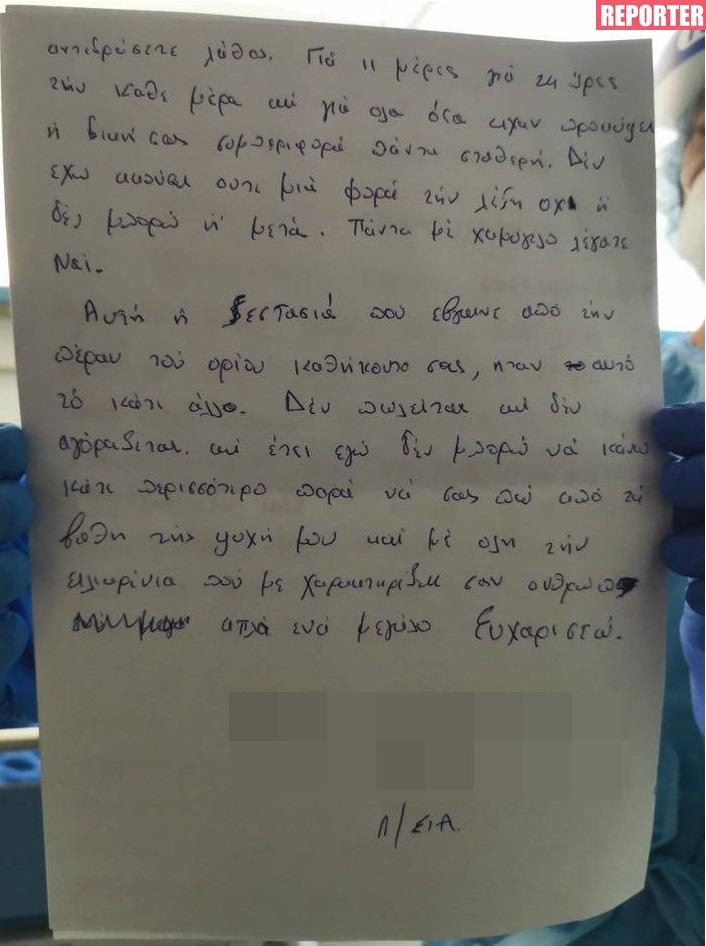 REPORTER
αντιδράσετε λάθος. Γιά 11 μέρες γιά 24 ώρες
την καθε μέρα και γιά ολα όσα ειχαν προκύψει
ή δική σας συμπεριφορά πάντα σταθερή. Δέν
εχω ακούσει ουτε μιά φορά τήν λέξη οχι ή
δέν μπορώ ή μετά. Πάντα μέ χαμόγελο λέγατε
Ναί.
Αυτή ή ζεστασιά που εβγαινε από τήν
πέραν τού ορίου καθήκοντο σας, ηταν αυτό
τό κάτι άλλο. Δέν πωλείται και δέν
αγοράζεται. και έτσι εγώ δέν μπορώ νά κάνω
κάτι περισσότερο παρά νά σας πώ από τά
βαθη τής ψυχή μου καί μέ ολη τήν
ειλικρίνια πού με χαρακτηρίζει σαν ανθρωπο
απλά ενα μεγάλο Ευχαριστώ.
Λ/ΣΙΑ.